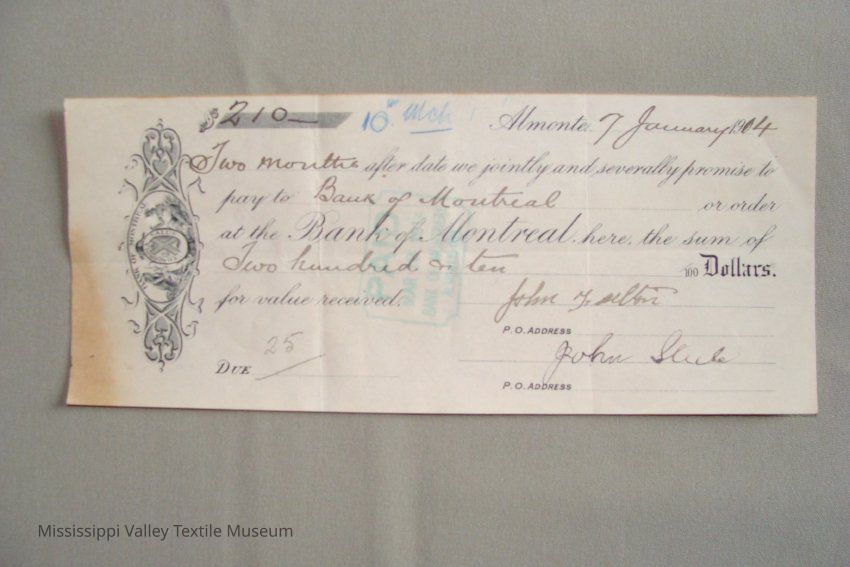 $ 210—
10th Mch
Almonte, 7 January 1904
Two months after date we jointly and severally promise to
pay to Bank of Montreal or order
at the Bank of Montreal, here, the sum of
Two hundred & ten /100 Dollars.
for value received.
John
P.O. ADDRESS
John
DUE 25
P.O. ADDRESS
PAID
MAR
BANK OF MONTREAL
Mississippi Valley Textile Museum